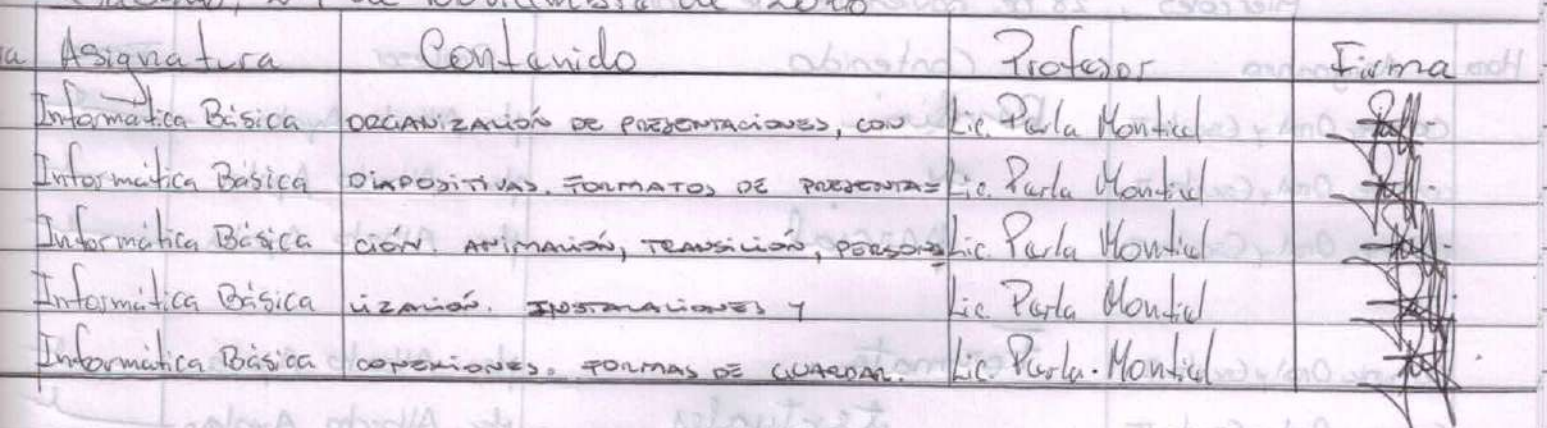 de Noviembre de 2018
Asignatura Contenido Profesor Firma
Informática Básica ORGANIZACIÓN DE PRESENTACIONES, CON Lic. Perla Montiel
Informática Básica DIAPOSITIVAS. FORMATOS DE PRESENTA= Lic. Perla Montiel
Informática Básica CIÓN. ANIMACIÓN, TRANSICIÓN, PERSONA Lic. Perla Montiel
Informática Básica LIZACIÓN. INSTALACIONES Y Lic. Perla Montiel
Informática Básica CONEXIONES. FORMAS DE GUARDAR. Lic. Perla. Montiel